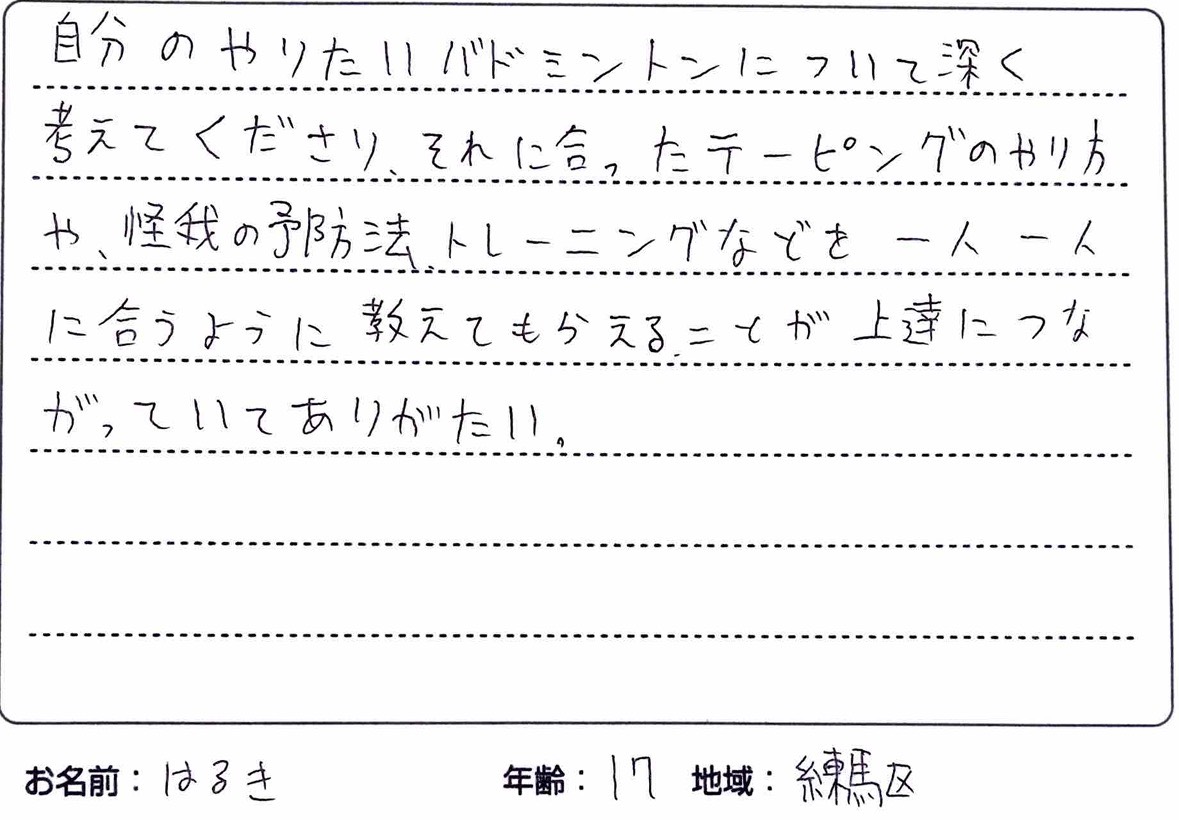 自分のやりたいバドミントンについて深く
考えてくださり、それに合ったテーピングのやり方
や、怪我の予防法、トレーニングなどを一人一人
に合うように教えてもらえることが上達につな
がっていてありがたい。
お名前：はるき 年齢：17 地域：練馬区